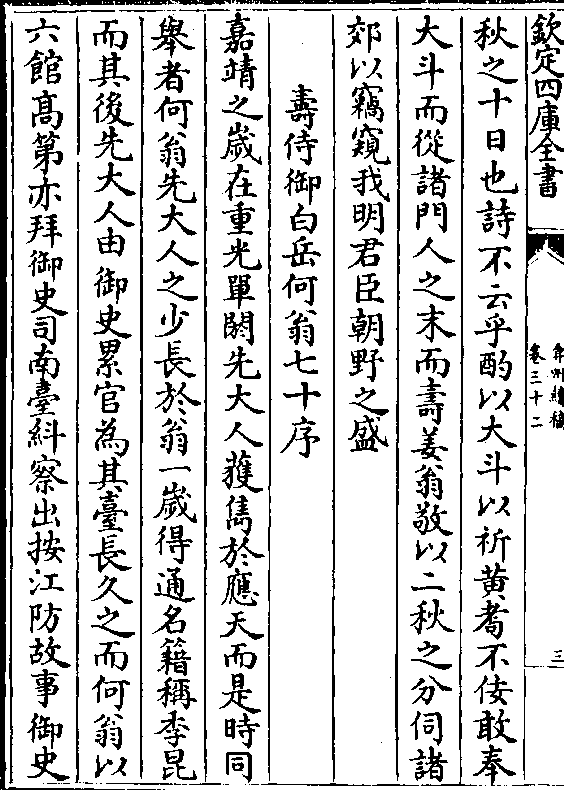 欽定四庫全書
弇州續稿
卷三十二
三
秋之十日也詩不云乎酌以大斗以祈黄耉不佞敢奉
大斗而從諸門人之末而壽姜翁敬以二秋之分伺諸
郊以竊窺我明君臣朝野之盛
壽侍御白岳何翁七十序
嘉靖之歲在重光單閼先大人獲雋於應天而是時同
舉者何翁先大人之少長於翁一歲得通名籍稱季昆
而其後先大人由御史累官為其臺長久之而何翁以
六館髙第亦拜御史司南臺糾察出按江防故事御史